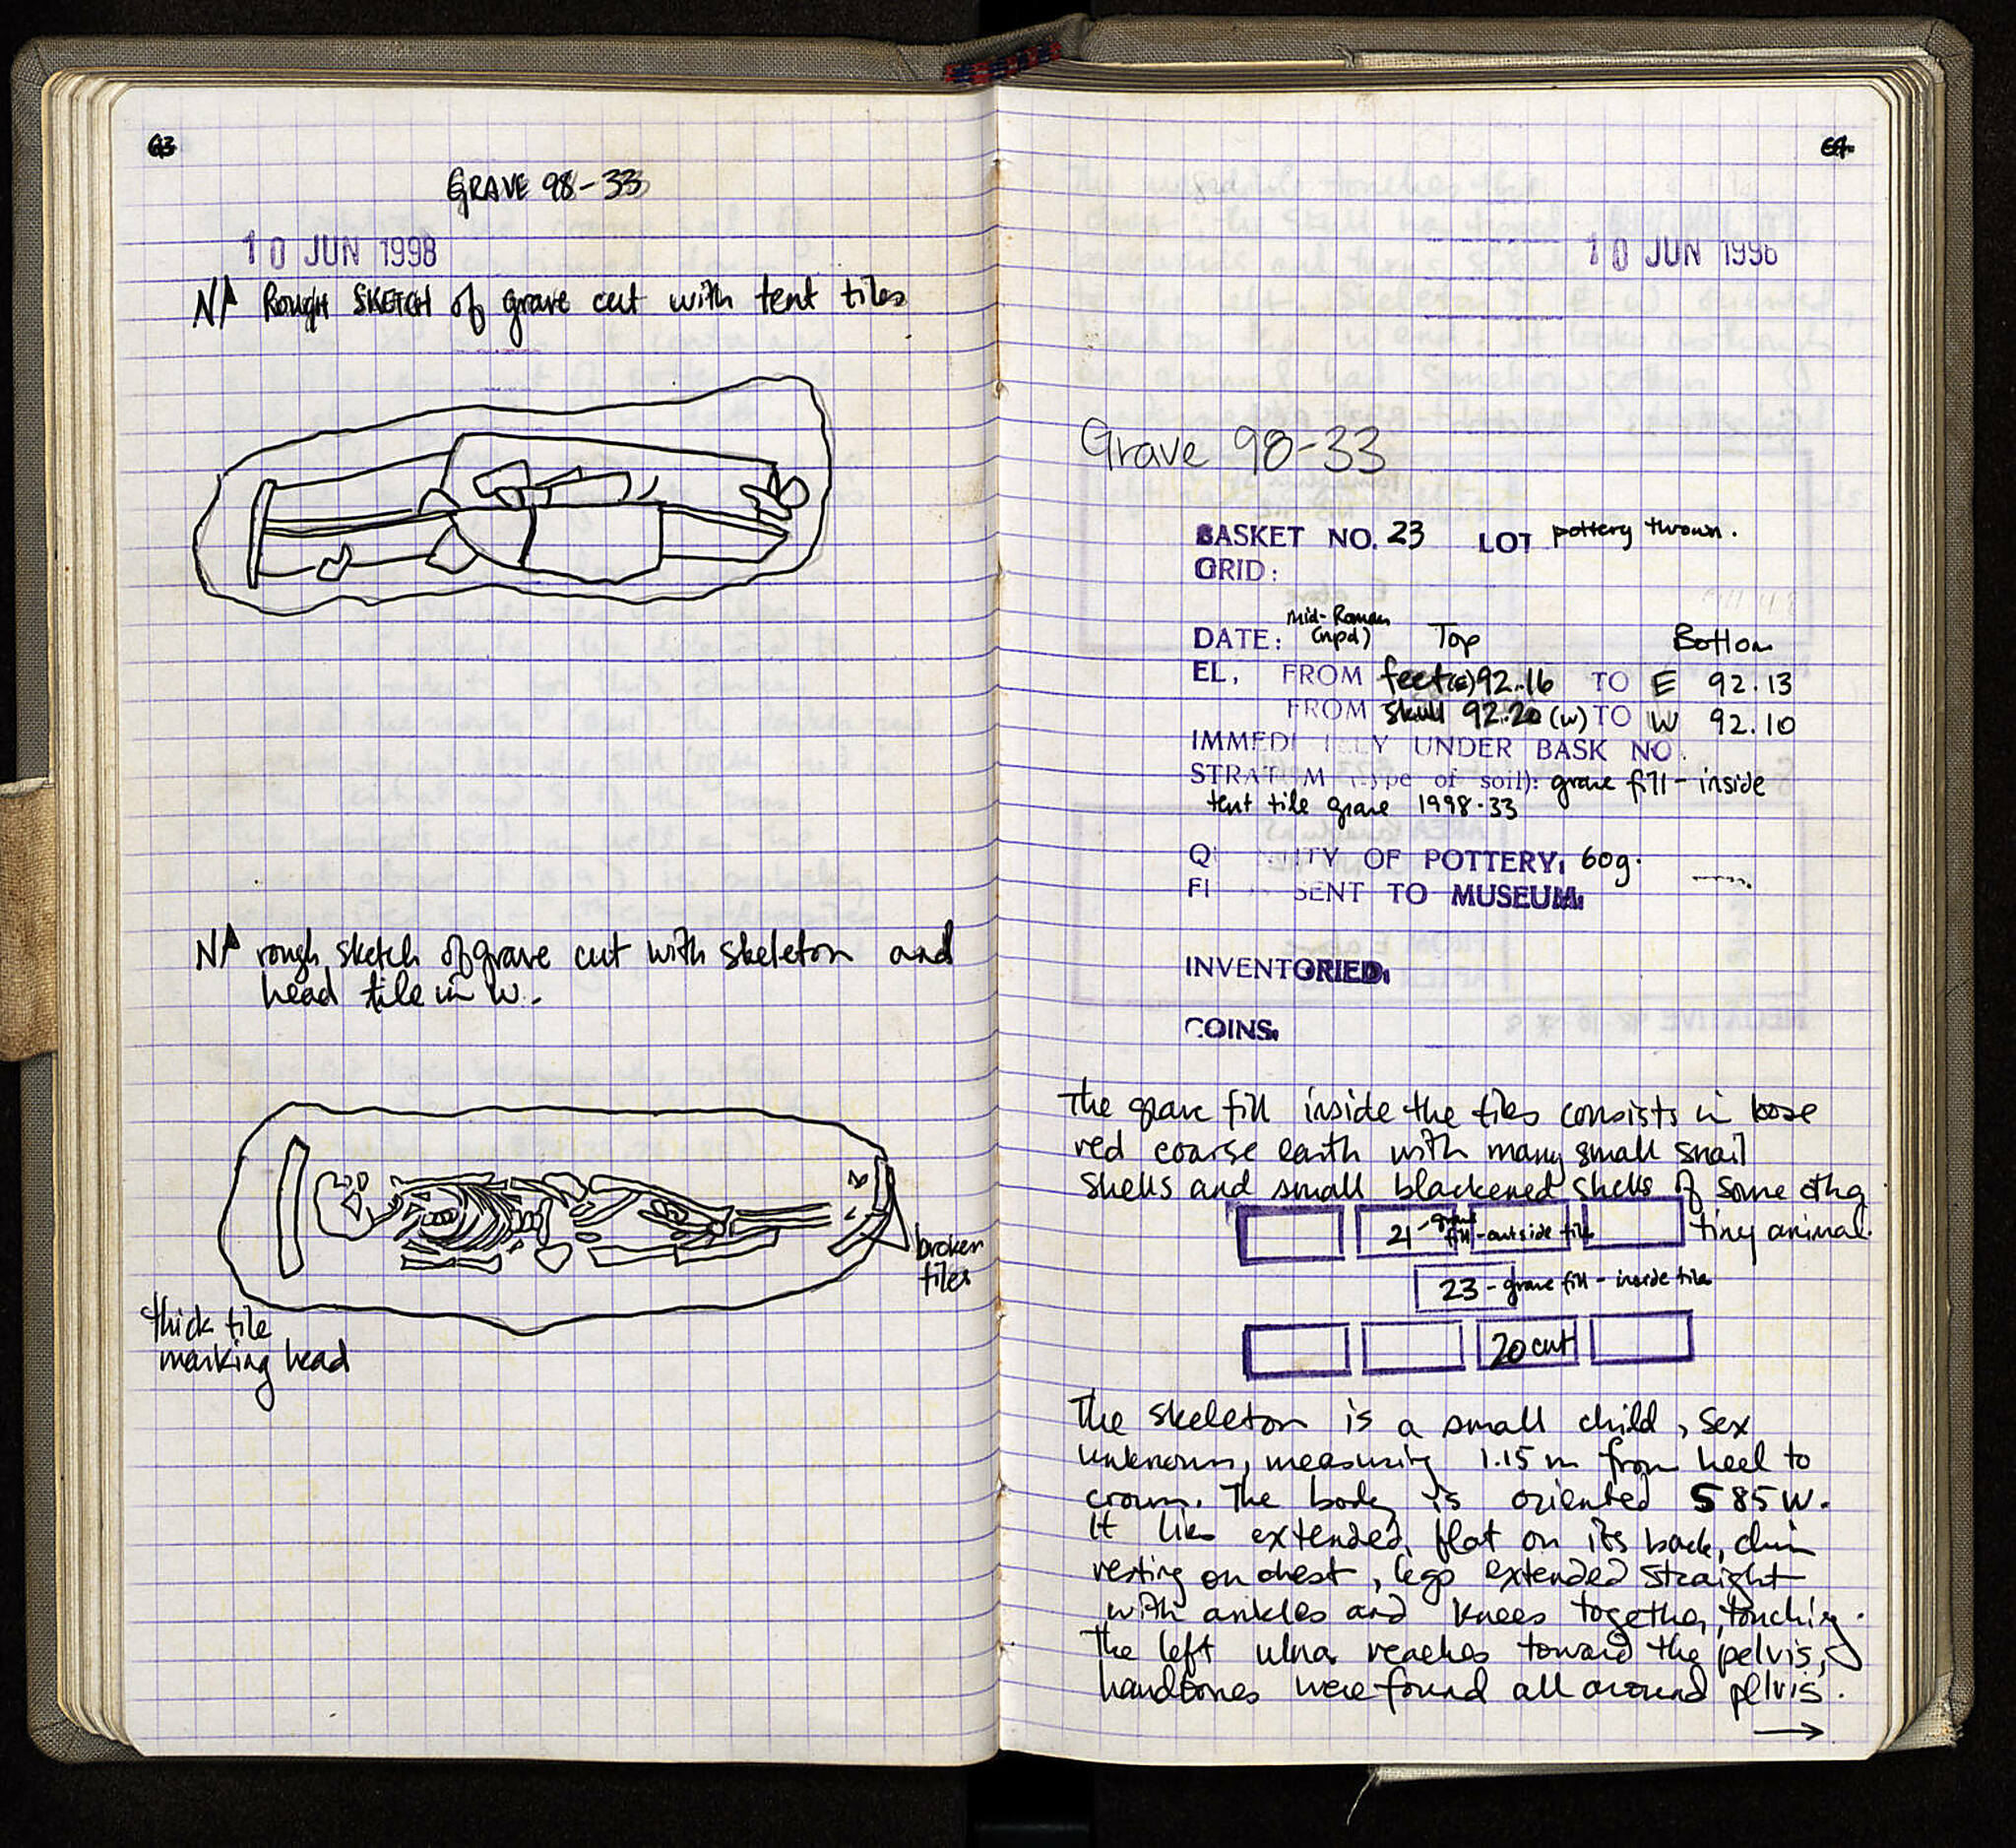 63
GRAVE 98-33
10 JUN 1998
N↑ Rough SKETCH of grave cut with tent tiles
N↑ rough sketch of grave cut with skeleton and
head tile in W.
broken
tiles
thick tile
marking head
64
10 JUN 1998
Grave 98-33
BASKET NO. 23 LOT pottery thrown.
GRID:
mid-Roman
DATE: (npd) Top Bottom
EL, FROM feet(E) 92.16 TO E 92.13
FROM skull 92.20 (W) TO W 92.10
IMMEDI LY UNDER BASK NO.
STRATUM (type of soil): grave fill - inside
tent tile grave 1998-33
QU TITY OF POTTERY: 60g.
FI SENT TO MUSEUM:
INVENTORIED:
COINS:
The grave fill inside the tiles consists in loose
red coarse earth with many small snail
shells and small blackened shells of some othg
tiny animal.
21 - grave fill - outside tile
23 - grave fill - inside tile
20 cut
The skeleton is a small child, sex
unknown, measuring 1.15 m from heel to
crown. The body is oriented S 85 W.
It lies extended, flat on its back, chin
resting on chest, legs extended straight
with ankles and knees together, touching.
The left ulna reaches toward the pelvis,
handbones were found all around pelvis.
→